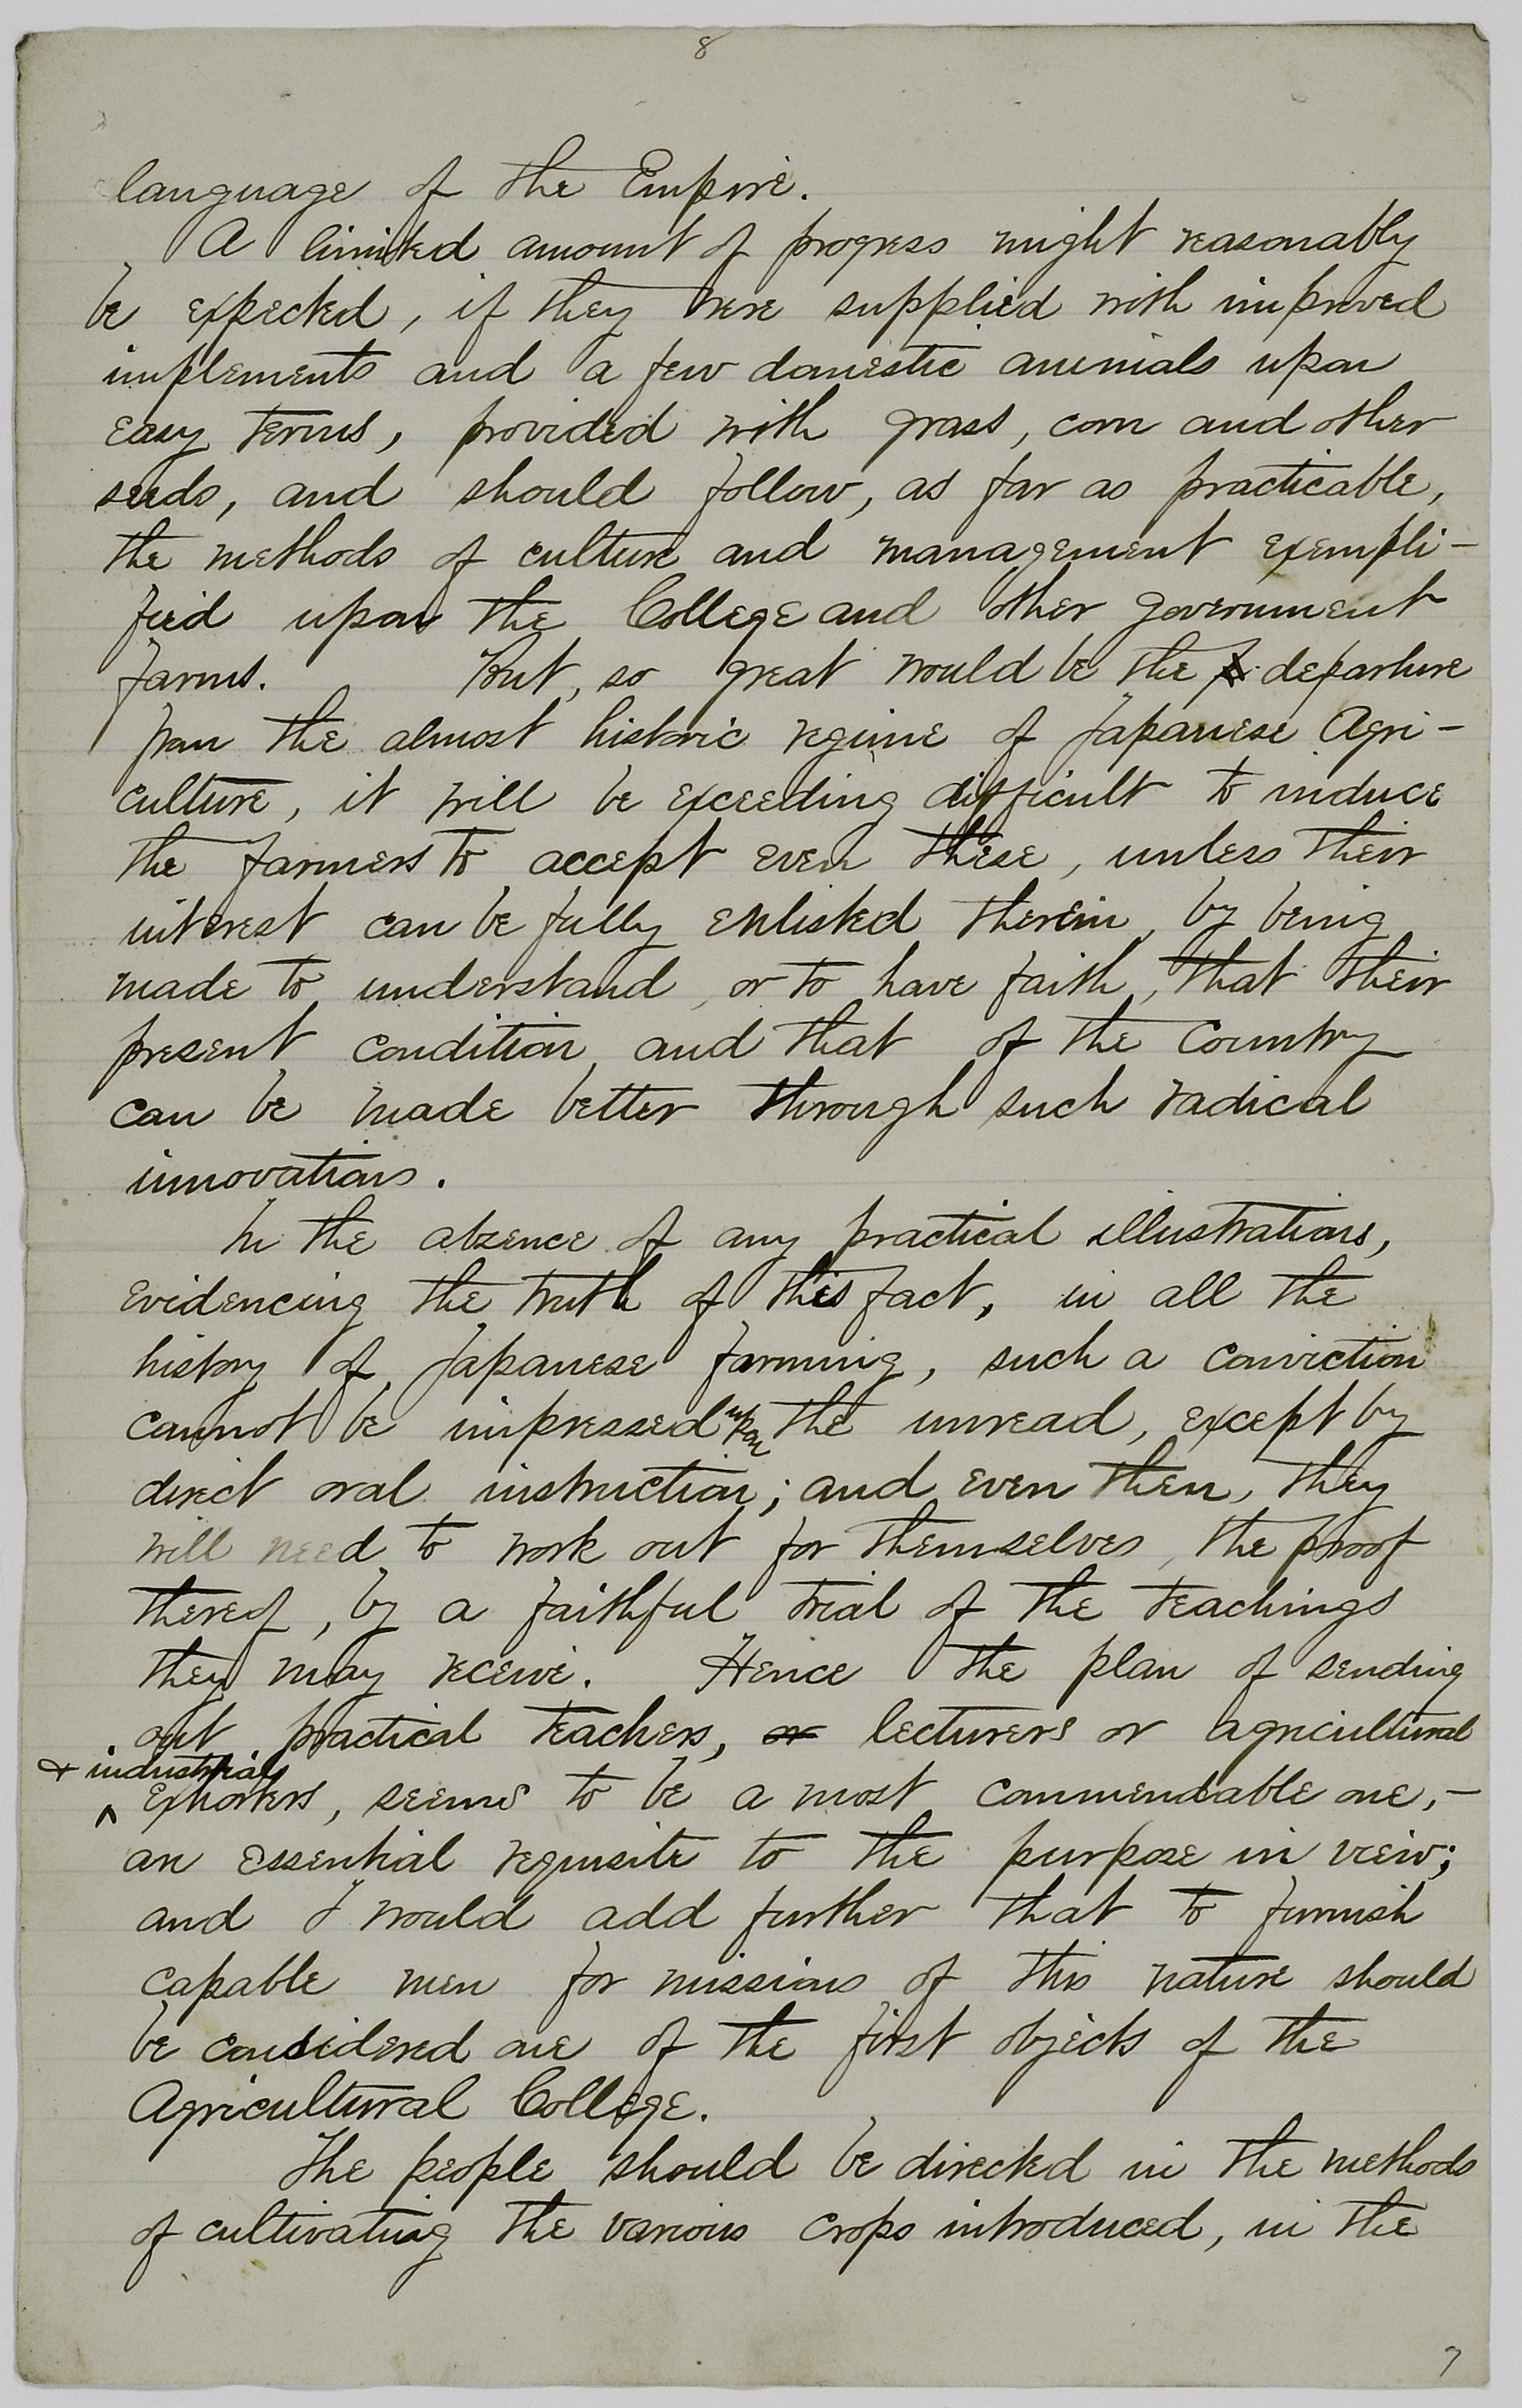 8
language of the Empire.
A limited amount of progress might reasonably
be expected, if they were supplied with improved
implements and a few domestic animals upon
easy terms, provided with grass, corn and other
seeds, and should follow, as far as practicable,
the methods of culture and management exempli-
fied upon the College and other government
farms. But, so great would be the departure
from the almost historic regime of Japanese Agri-
culture, it will be exceeding difficult to induce
the farmers to accept even these, unless their
interest can be fully enlisted therein, by being
made to understand, or to have faith, that their
present condition, and that of the Country
can be made better through such radical
innovations.
In the absence of any practical illustrations,
evidencing the truth of this fact, in all the
history of Japanese farming, such a conviction
cannot be impressed upon the unread, except by
direct oral instruction; and even then, they
will need to work out for themselves, the proof
thereof, by a faithful trial of the teachings
they may receive. Hence the plan of sending
out practical teachers, or lecturers or agricultural
& industrial
exhorters, seems to be a most commendable one,-
an essential requisite to the purpose in view;
and I would add further that to furnish
capable men for missions of this nature should
be considered one of the first objects of the
Agricultural College.
The people should be directed in the methods
of cultivating the various crops introduced, in the
7